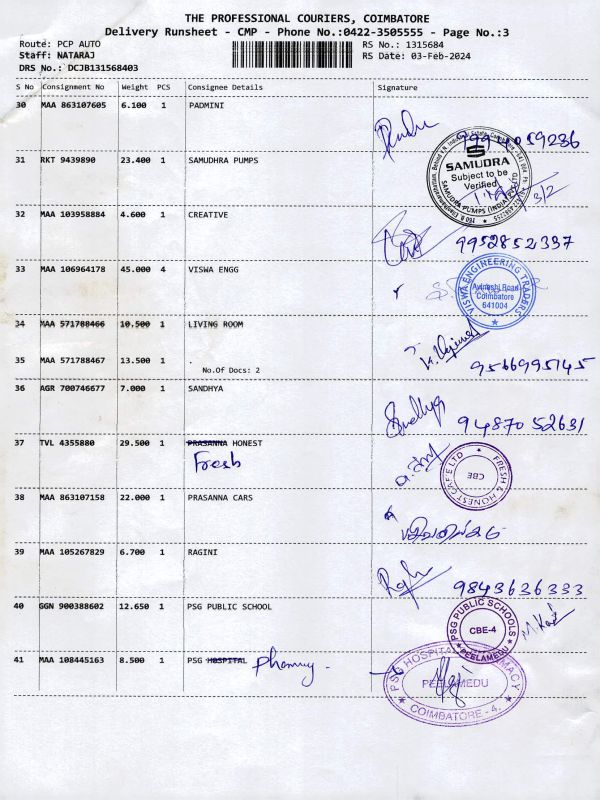 THE PROFESSIONAL COURIERS, COIMBATORE
Delivery Runsheet - CMP - Phone No.:0422-3505555 - Page No.:3
Route: PCP AUTO
RS No.: 1315684
Staff: NATARAJ
RS Date: 03-Feb-2024
DRS No.: DCJB131568403
S No Consignment No Weight PCS Consignee Details Signature
30 MAA 863107605 6.100 1 PADMINI
9994059236
31 RKT 9439890 23.400 1 SAMUDHRA PUMPS
SAMUDRA
Subject to be
Verified
SAMUDRA PUMPS (INDIA) PVT LTD
3/2
32 MAA 103958884 4.600 1 CREATIVE
9952852337
33 MAA 106964178 45.000 4 VISWA ENGG
VISWA ENGINEERING TRADERS
Avinashi Road
Coimbatore
641004
34 MAA 571788466 10.500 1 LIVING ROOM
35 MAA 571788467 13.500 1 .
No.Of Docs: 2
9566995145
36 AGR 700746677 7.000 1 SANDHYA
Sandhya 9487052631
37 TVL 4355880 29.500 1 PRASANNA HONEST
Fresh
FRESH & HONEST CAFE LTD
CBE
38 MAA 863107158 22.000 1 PRASANNA CARS
39 MAA 105267829 6.700 1 RAGINI
9843636333
40 GGN 900388602 12.650 1 PSG PUBLIC SCHOOL
PSG PUBLIC SCHOOLS
CBE-4
PEELAMEDU
41 MAA 108445163 8.500 1 PSG HOSPITAL
PSG HOSPITAL PHARMACY
PEELAMEDU
COIMBATORE - 4.